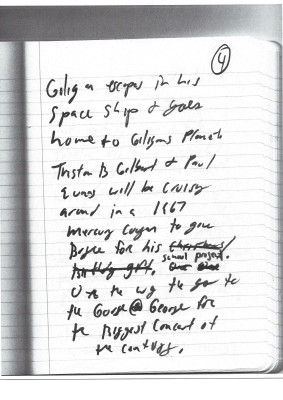 4
Gilig n escapes in his
Space Ship & goes
home to Giligans Planet
Tristan B Gilbert & Paul
Evans will be Cruisy
around in a 1967
Mercury Cougar to give
Boyce for his Christmas
school project.
On the way the go to
the Goose @ George for
the Biggest Concert of
the century.